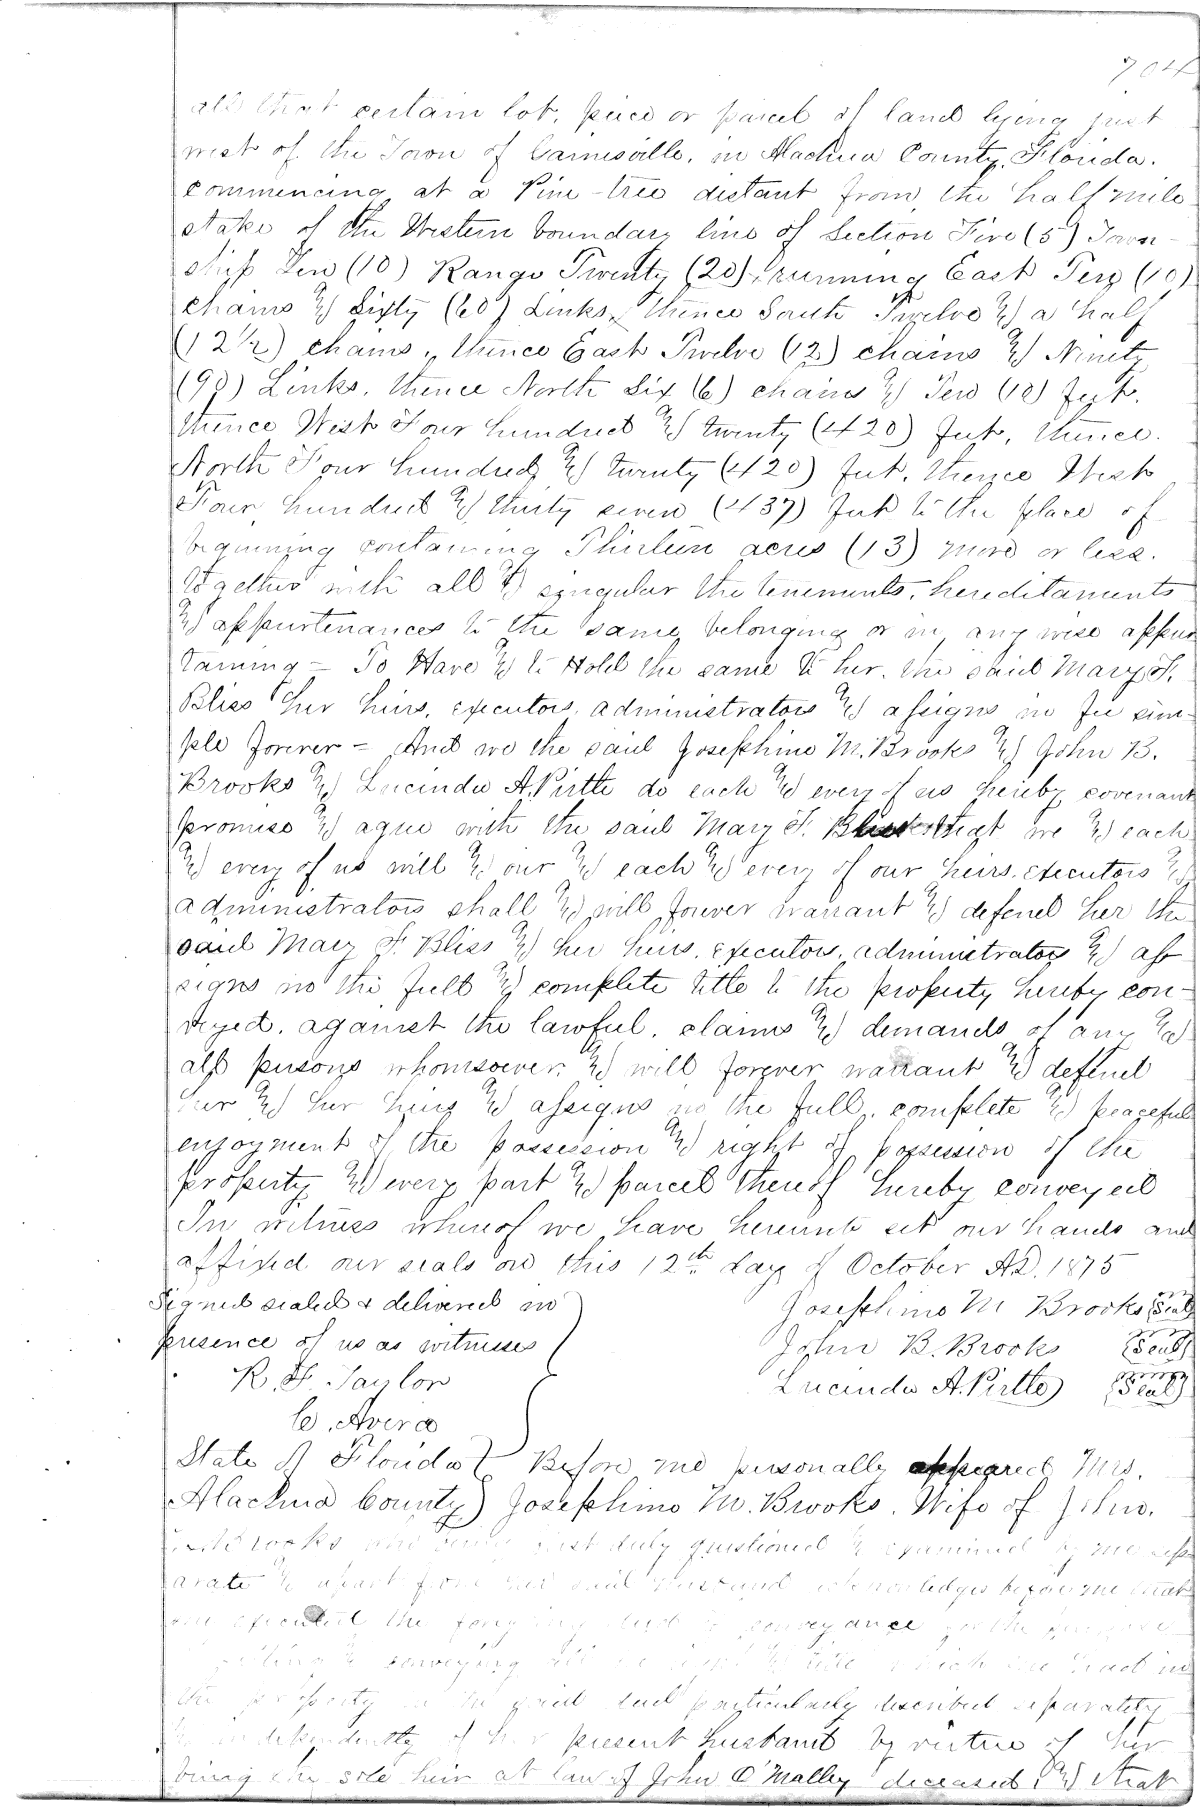 704
all that certain lot, piece or parcel of land lying just
west of the Town of Gainesville, in Alachua County, Florida.
commencing at a Pine-tree distant from the half mile
stake of the Western boundary line of Section Five (5) Town-
ship Ten (10) Range Twenty (20), running East Ten (10)
chains & Sixty (60) Links, thence South Twelve & a half
(12½) chains, thence East Twelve (12) chains & Ninety
(90) Links, thence North Six (6) chains & Ten (10) feet,
thence West Four hundred & twenty (420) feet, thence
North Four hundred & twenty (420) feet, thence West
Four hundred & thirty seven (437) feet to the place of
beginning containing Thirteen acres (13) more or less.
together with all & singular the tenements, hereditaments
& appurtenances to the same belonging or in any wise appur
taining - To Have & to Hold the same to her, the said Mary F.
Bliss her heirs, executors, administrators & assigns in fee sim-
ple forever - And we the said Josephine M. Brooks & John B.
Brooks & Lucinda A. Pirtle do each & every of us hereby covenant
promise & agree with the said Mary F. Bliss that we & each
& every of us will & our & each & every of our heirs, executors &
administrators shall & will forever warrant & defend her the
said Mary F. Bliss & her heirs, executors, administrators & as
signs in the full & complete title to the property hereby con-
veyed, against the lawful claims & demands of any &
all persons whomsoever, & will forever warrant & defend
her & her heirs & assigns in the full, complete & peaceful
enjoyment of the possession & right of possession of the
property & every part & parcel thereof hereby conveyed
In witness whereof we have hereunto set our hands and
affixed our seals on this 12th day of October A.D. 1875
Signed sealed & delivered in
presence of us as witnesses
R. F. Taylor
C. Avera
Josephine M Brooks (Seal)
John B. Brooks (Seal)
Lucinda A. Pirtle (Seal)
State of Florida } Before me personally appeared Mrs.
Alachua County } Josephine M. Brooks, Wife of John
Brooks who being first duly questioned & examined by me sep
arate & apart from her said husband acknowledges before me that
she executed the foregoing deed & conveyance for the purpose
& conveying all right & title which she had in
the property in the said deed particularly described separately
& independently of her present husband by virtue of her
being the sole heir at law of John O'Malley deceased, & that